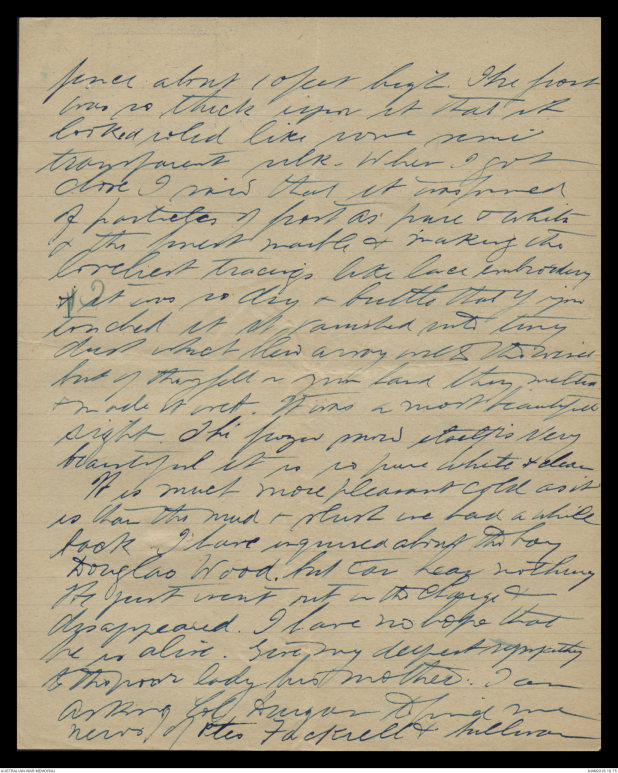 fence about 10 feet high. The frost
was so thick upon it that it
looked solid like some semi
transparent silk. When I got
close I saw that it was formed
of particles of frost as pure & white
as the finest marble & making the
loveliest tracings like lace embroidery
& it was so dry & brittle that if you
touched it it vanished into tiny
dust which blew away in the wind
but if they fell on your hand they melted
& made it wet. It was a most beautiful
sight. The frozen snow itself is very
beautiful it is so pure white & clean
It is much more pleasant cold as it
is than the mud & slush we had a while
back I have inquired about the boy
Douglas Wood. but can hear nothing
He just went out in the charge &
disappeared. I have no hope that
he is alive. Give my deepest sympathy
to the poor lady his mother. I am
asking Col to find me
news of Ptes Fackrell & Sullivan
42
AUSTRALIAN WAR MEMORIAL